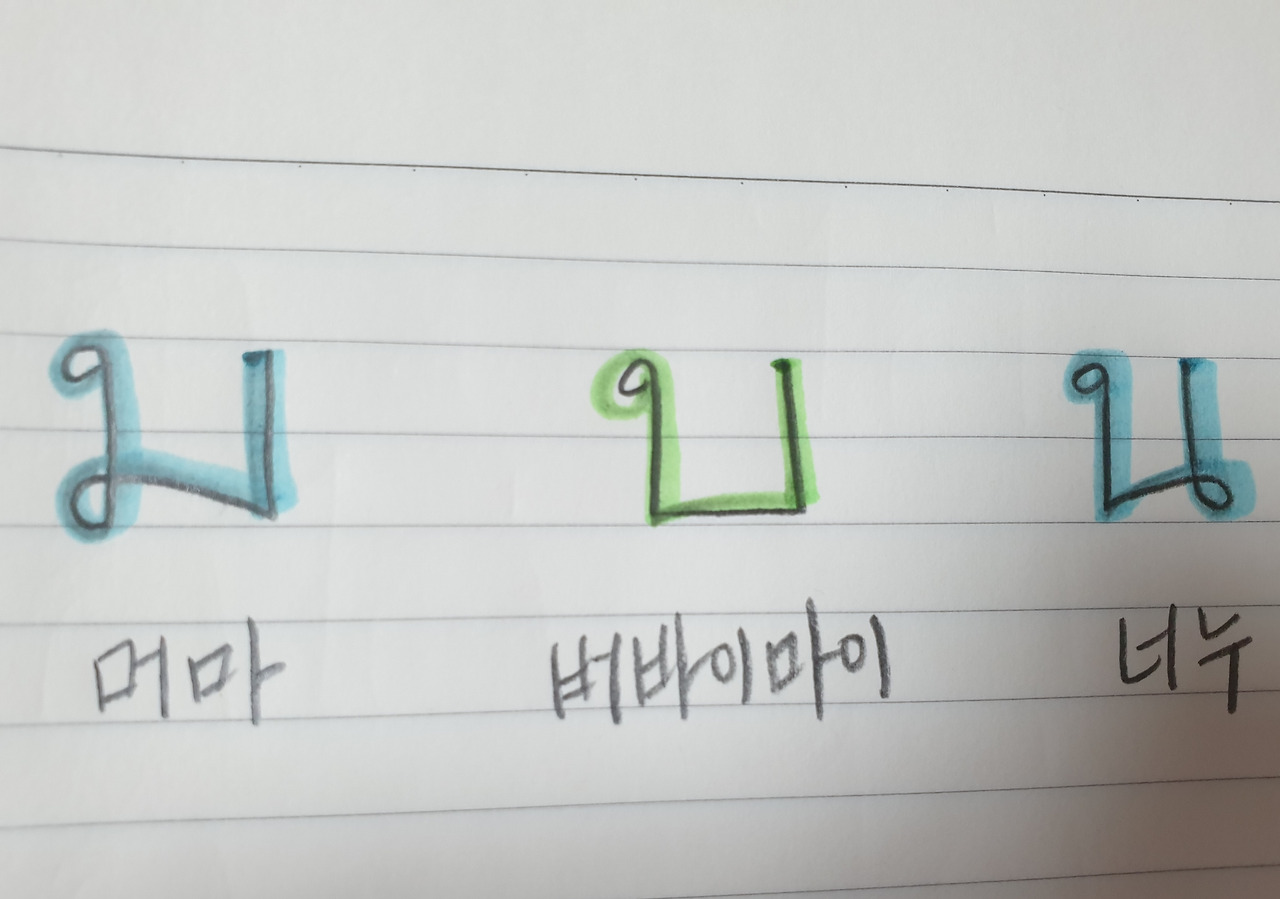 ม บ น
머마 벼바이마이 너누